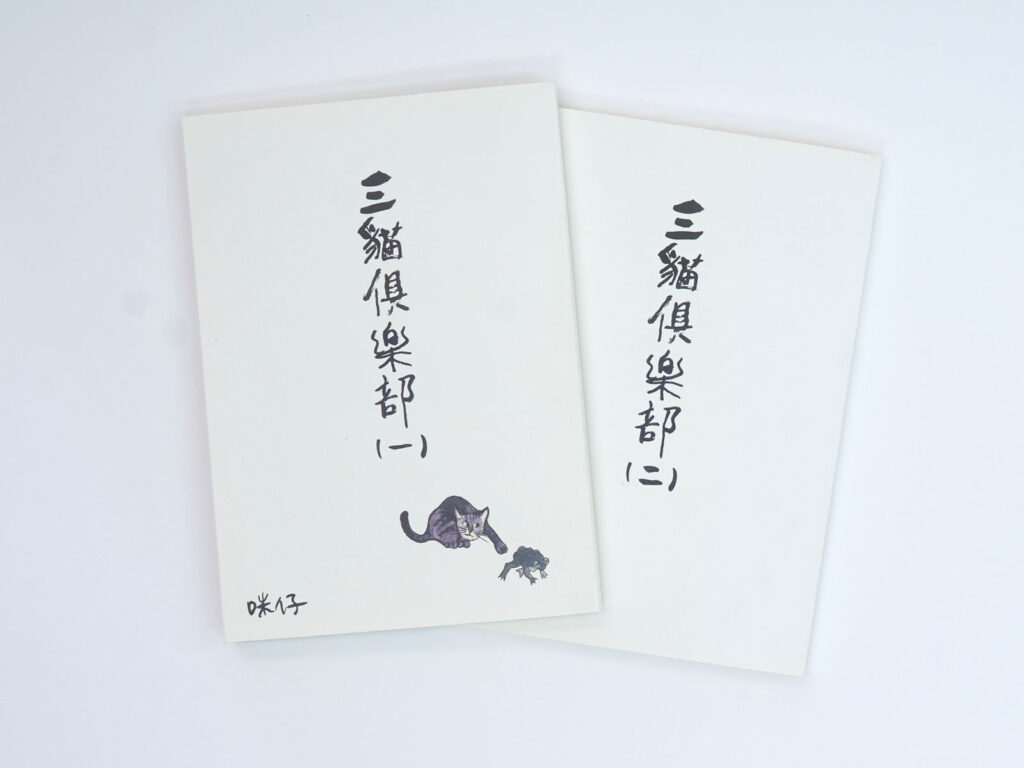 三貓俱樂部(一)
咪仔
三貓俱樂部(二)